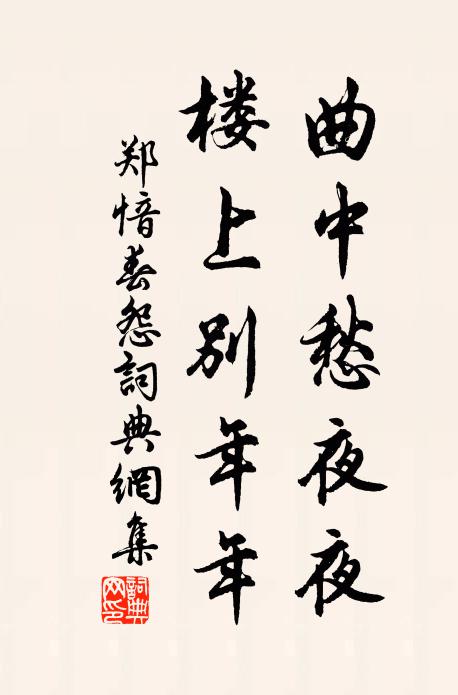 曲中愁夜夜
楼上别年年
郑愔春怨詞典網集
詞典網印